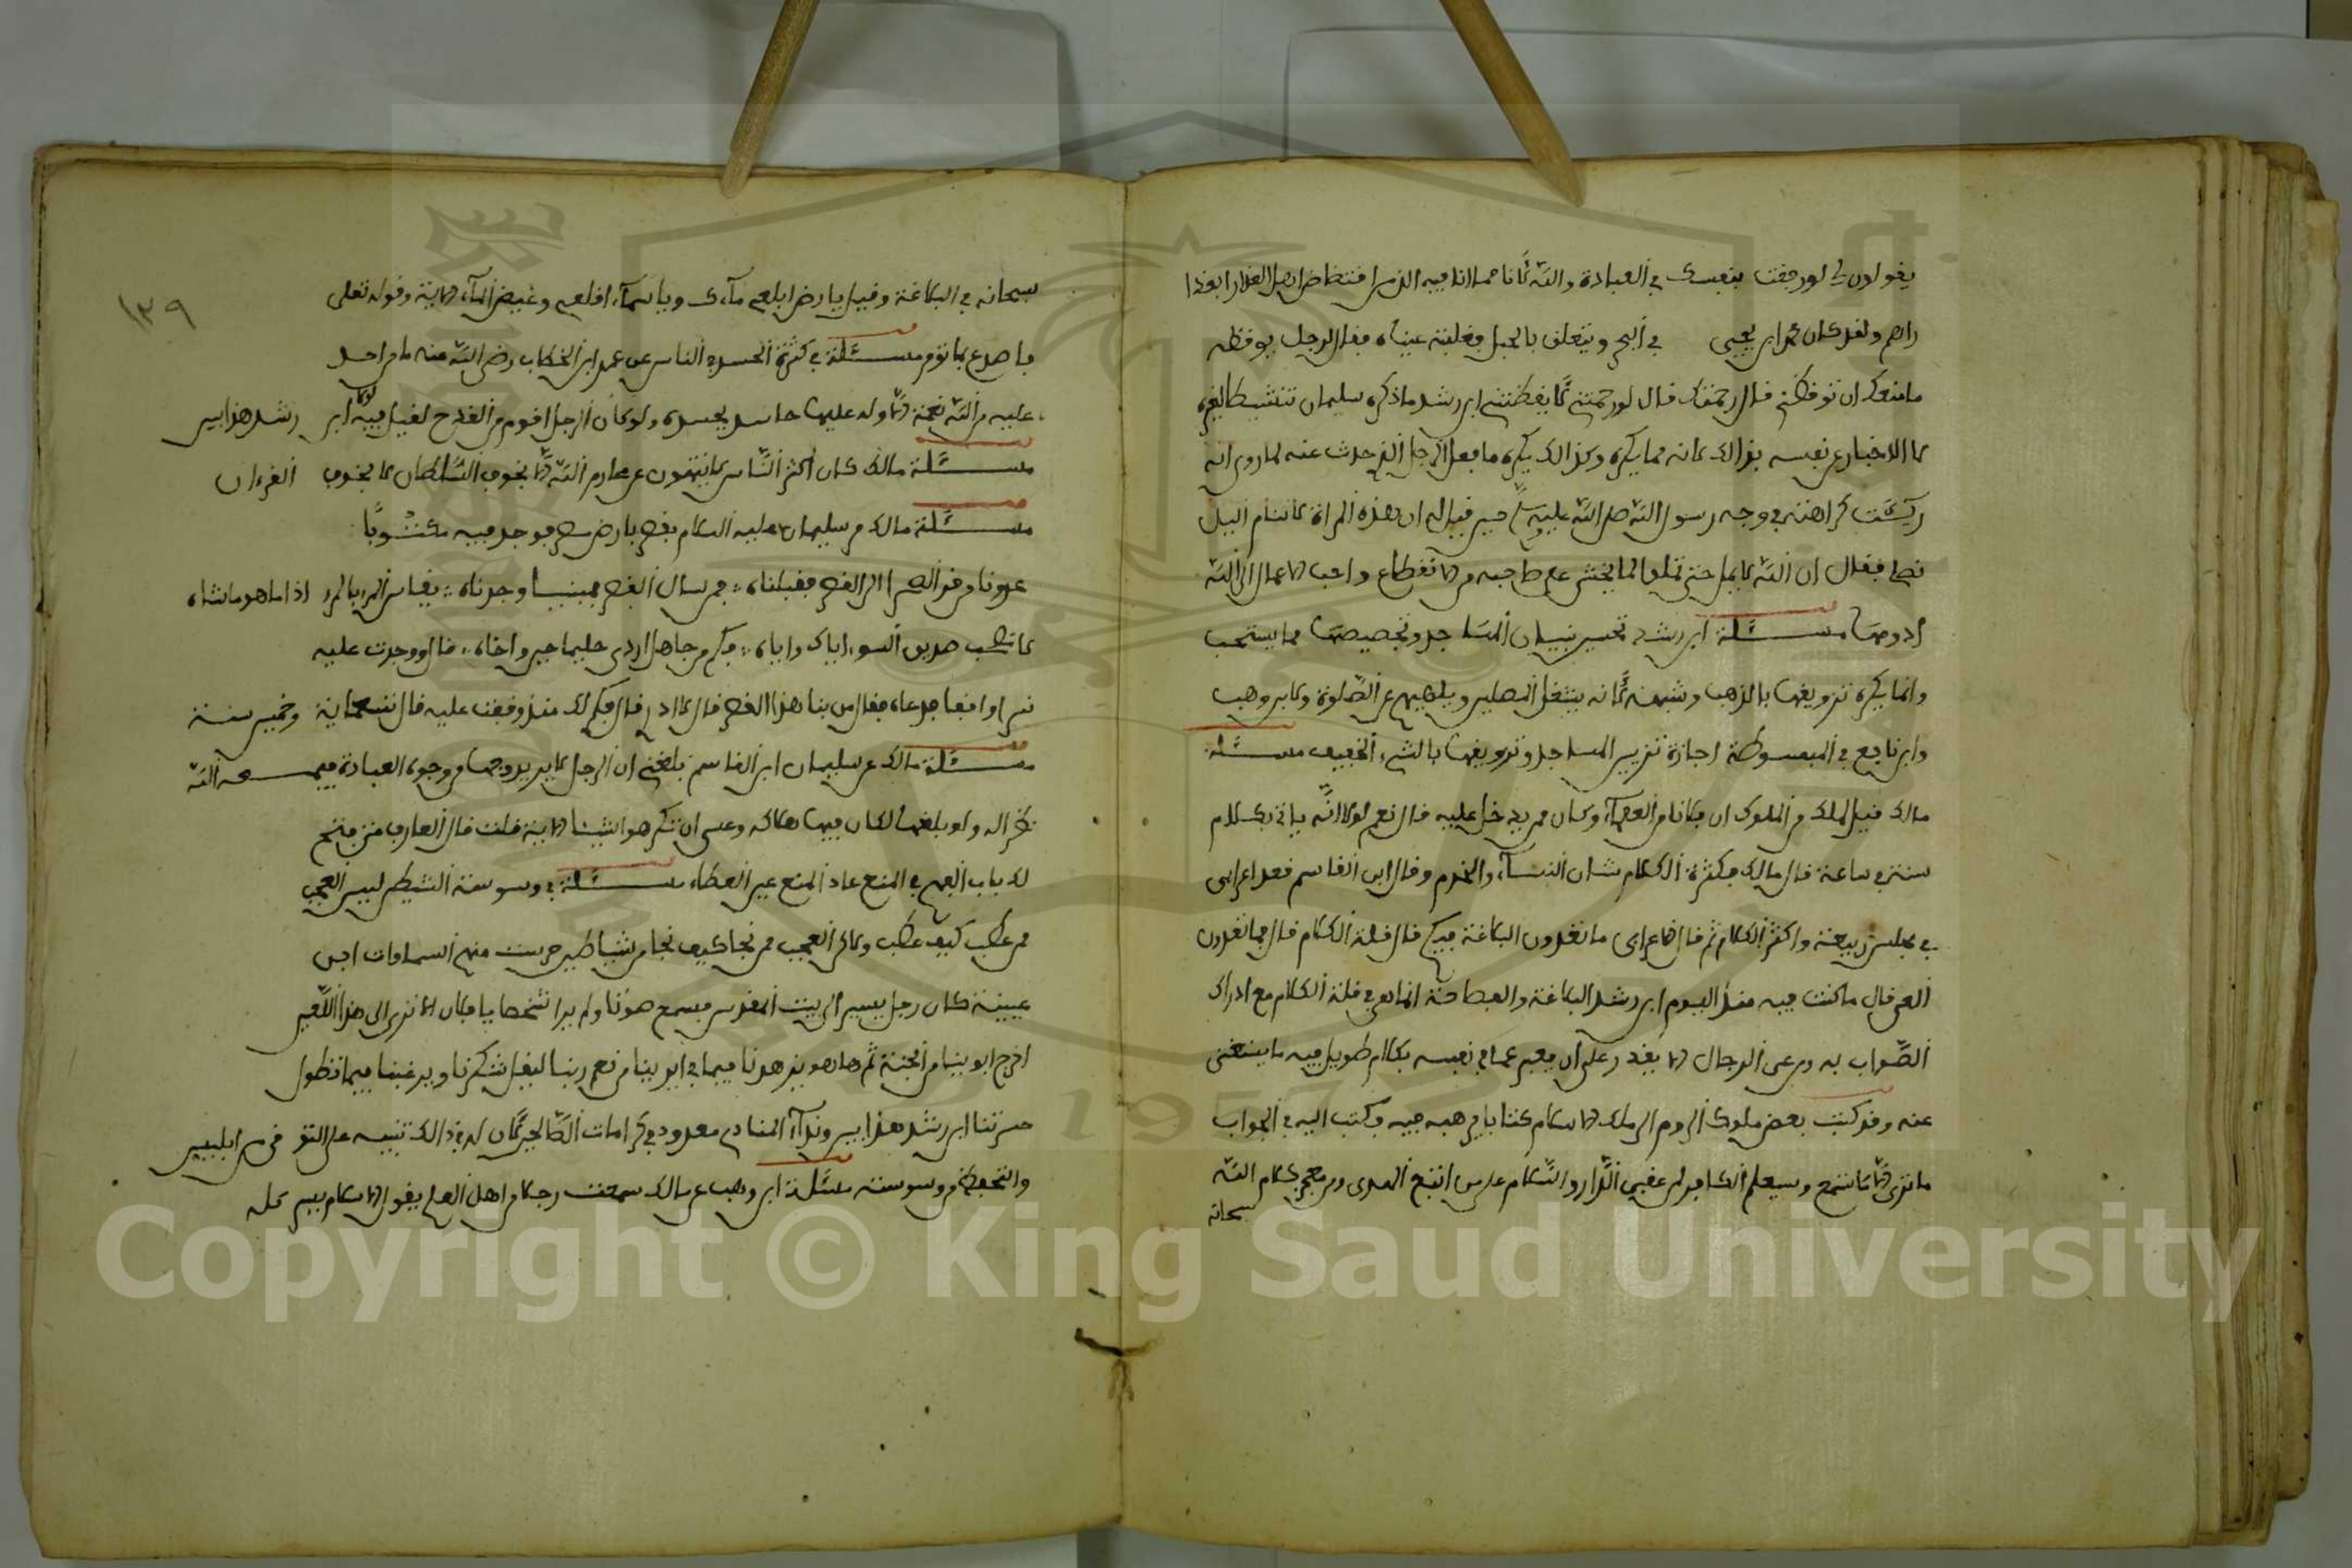 يقولون لي لو رفقت بنفسك في العبادة والله
راهم ولقد كان عمر ابن يحيى في البحر ويتعلق بالحبل فغلبته عيناه فقال لرجل يوقظه
ما منعك ان توقظني قال رحمتك قال لو رحمتني لايقظتني ابن رشد ما ذكره سليمان
لا الاخبار عن نفسه بذالك لانه مما يكره وكذالك يكره ما فعل الرجل الذي حدث عنه لما روي انه
ريئت كراهته في وجه رسول الله صلى الله عليه وسلم حين قيل له ان هذه المراة لا تنام اليل
فقال ان الله لا يمل حتى تملوا لما يخشى على صاحبه من الانقطاع واحب الاعمال الى الله
ادومها مسئلة ابن رشد تحسين بنيان المساجد وتجصيصها مما يستحب
وانما يكره تزويقها بالذهب وشبهه لانه يشغل المصلين ويلهيهم عن الصلوة ولابن وهب
وابن نافع في المبسوطة اجازة تزيين المساجد وتزويقها بالشيء الخفيف مسئلة
مالك قيل لملك من الملوك ان فلانا من العلماء وكان ممن يدخل عليه قال نعم لولا انه ياتي بكلام
سنتين في ساعة قال مالك فكثرة الكلام شان النساء والخدم وقال ابن القاسم قعد اعرابي
في مجلس ربيعة واكثر الكلام ثم قال لاعرابي ما تعدون البلاغة فيكم قال قلة الكلام قال فما تعدون
العي قال ما كنت فيه منذ اليوم ابن رشد البلاغة والفصاحة انما هي في قلة الكلام مع ادراك
الصواب به ومن عي الرجال الا يقدر على ان يعبر عما في نفسه بكلام طويل فيه ما يستغنى
عنه وقد كتب بعض ملوك الروم الى ملك الاسلام كتابا يرهبه فيه فكتب اليه في الجواب
ما ترى لا ما تسمع وسيعلم الكافر لمن عقبى الدار والسلام على من اتبع الهدى ومن معجز كلام الله
سبحانه
١٣٩
سبحانه في البلاغة وقيل يارض ابلعي ماءك وياسماء اقلعي وغيض الماء الاية وقوله تعلى
فاصدع بما تؤمر مسئلة في كثرة الحسد في الناس عن عمر ابن الخطاب رضي الله عنه ما من احد
عليه من الله نعمة الا وله عليها حاسد يحسده ولو كان الرجل اقوم من القدح لقيل فيه لولا ابن رشد هذا بين
مسئلة مالك كان اكثر الناس لا ينتهون عن محارم الله الا بخوف السلطان لا بخوف القرءان
مسئلة مالك مر سليمان عليه السلام بقصر بارض مصر فوجد فيه مكتوبا
غدونا من قرى اصطخر الى القصر فقبلناه فمن يسال القصر فمبنيا وجدناه يقاس المرء بالمرء اذا ما هو ماشاه
لا تصحب صديق السوء اياك واياه فكم من جاهل اردى حليما حين واخاه قال ووجدت عليه
نسرا واقفا فدعاه فقال من بنا هذا القصر قال لا ادري قال فكم لك منذ وقفت عليه قال تسعماية وخمسين سنة
مسئلة مالك عن سليمان ابن القاسم بلغني ان الرجل لا يريد وجها من وجوه العبادة فيمسحه الله
نظرا له ولو بلغها لكان فيها هلاكه وعسى ان تكرهوا شيئا الاية قلت قال العارف متى فتح
لك باب الفهم في المنع عاد المنع عين العطاء مسئلة في وسوسة الشيطن ليس العجب
ممن عطب كيف عطب ولاكن العجب ممن نجا كيف نجا من شياطين حرست منهم السماوات ابن
عيينة كان رجل يسير الى بيت المقدس فسمع صوتا ولم ير شخصا يا فلان الا ترى الى هذا اللعين
اخرج ابوينا من الجنة ثم هاهو
حسرتنا ابن رشد هذا بين ونداء المنادي معدود في كرامات الصالحين لان له في ذالك تنبيه على التوقي من ابليس
والتحفظ من وسوسته مسئلة ابن وهب عن مالك سمعت رجلا من اهل العلم يقول الاسلام